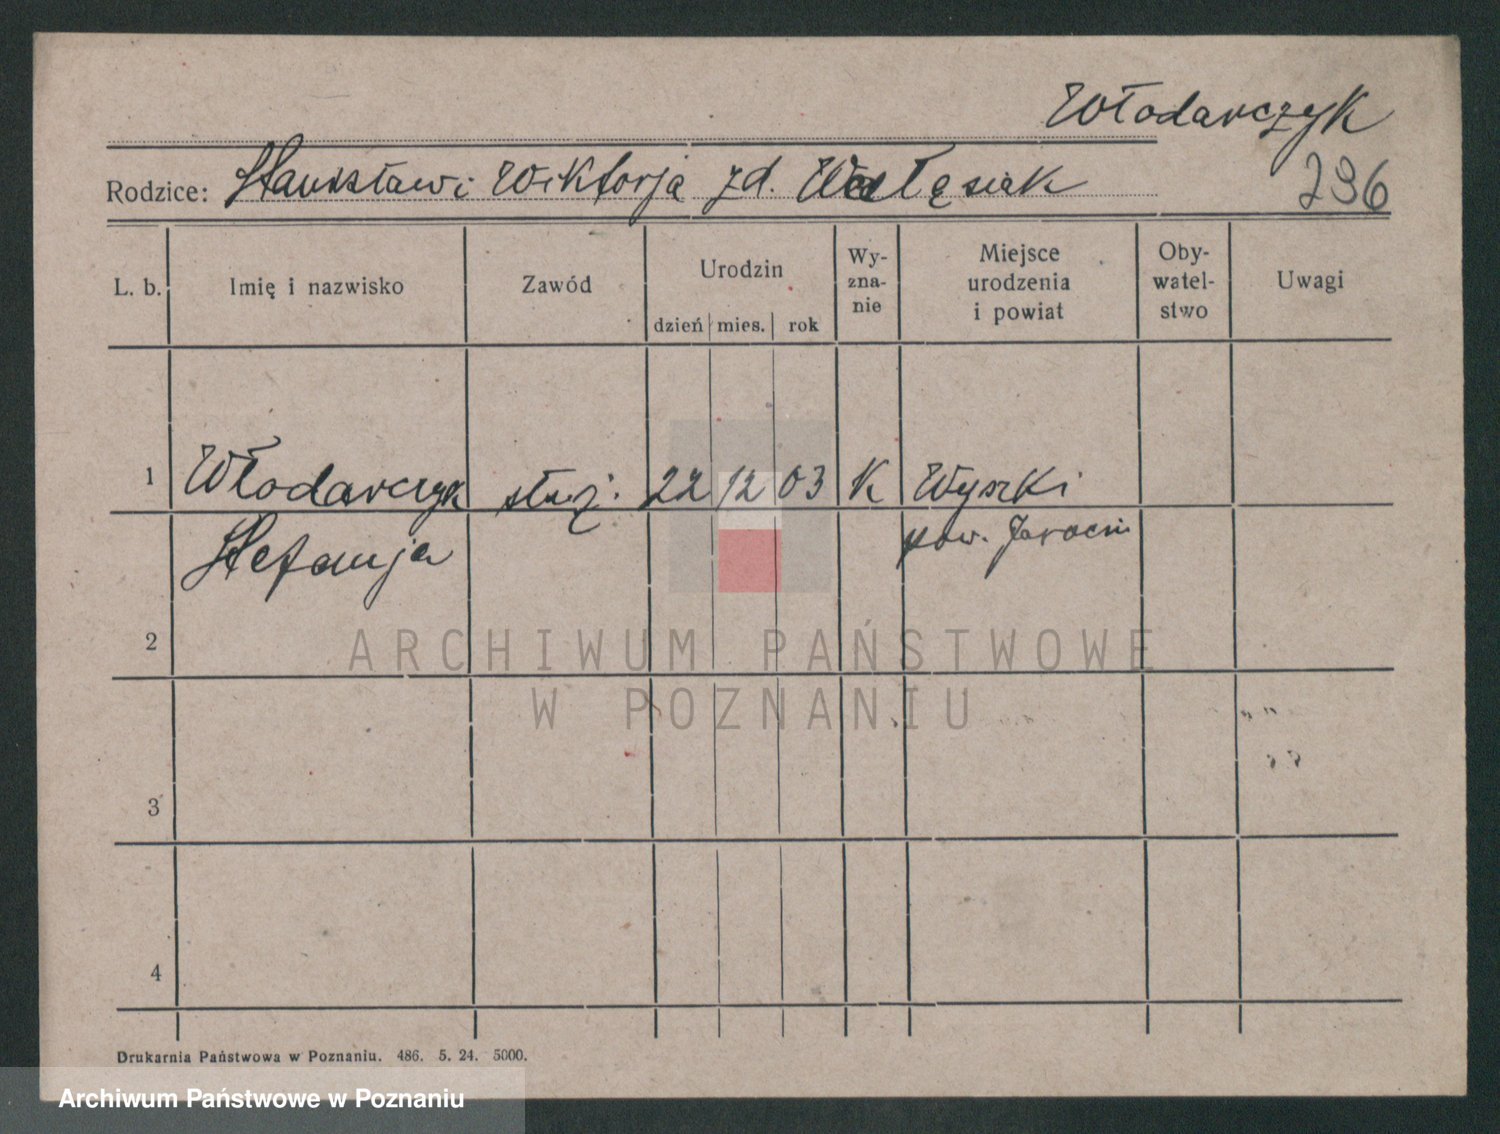 Włodarczyk
Rodzice: Stanisław i Wiktorja zd. Walęsiak
296
L. b.
Imię i nazwisko
Zawód
Urodzin
dzień mies. rok
Wy-
zna-
nie
Miejsce
urodzenia
i powiat
Oby-
watel-
stwo
Uwagi
1 Włodarczyk służ. 22 12 03 K Wyszki
Stefanja pow. Jarocin
2
3
4
ARCHIWUM PAŃSTWOWE
W POZNANIU
Drukarnia Państwowa w Poznaniu. 486. 5. 24. 5000.
Archiwum Państwowe w Poznaniu